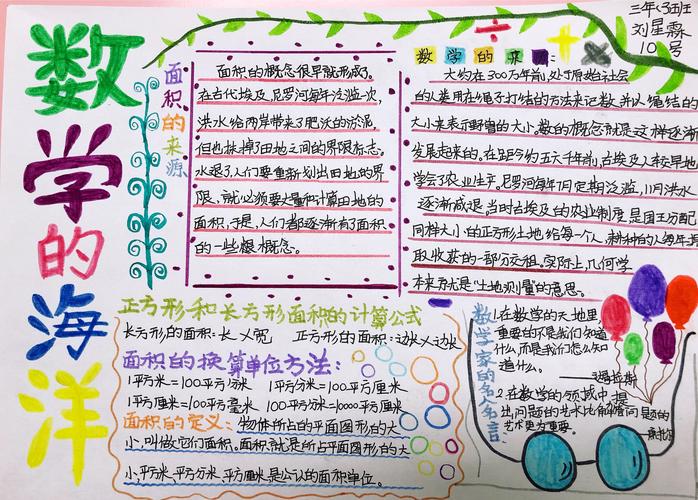 数学的海洋
三年(5)班
刘星霖
10号
面积的来源
面积的概念很早就形成了。
在古代埃及,尼罗河每年泛滥一次,
洪水给两岸带来了肥沃的淤泥,
但也抹掉了田地之间的界限标志。
水退了,人们要重新划出田地的界
限,就必须丈量和计算田地的
面积,于是,人们都逐渐有了面积
的一些根概念。
数学的来源:
大约在300万年前,处于原始社会
的人类用在绳子打结的方法来记数,并以绳结的
大小来表示野兽的大小,数的概念就是这样逐渐
发展起来的。在距今约五六千年前,古埃及人较早地
学会了农业生产。尼罗河每年7月定期泛滥,11月洪水
逐渐减退,当时古埃及的农业制度,是国王分配
同样大小的正方形土地给每一个人,耕种的人每年
取收获的一部分交租。实际上,几何学
本来就是"土地测量"的意思。
正方形和长方形面积的计算公式
长方形的面积:长×宽 正方形的面积:边长×边长
面积的换算单位方法:
1平方米=100平方分米 1平方分米=100平方厘米
1平方厘米=100平方毫米 100平方分米=10000平方厘米
面积的定义:物体所占的平面图形的大
小,叫做它们面积。面积就是所占平面图形的大
小,平方米、平方分米、平方厘米是公认的面积单位。
数学家的名人名言:
1.在数学的天地里,
重要的不是我们知道
什么,而是我们怎么知
道什么。
——毕达拉斯
2.在数学的领域中,提
出问题的艺术比解答问题的
艺术更为重要。
——康托尔